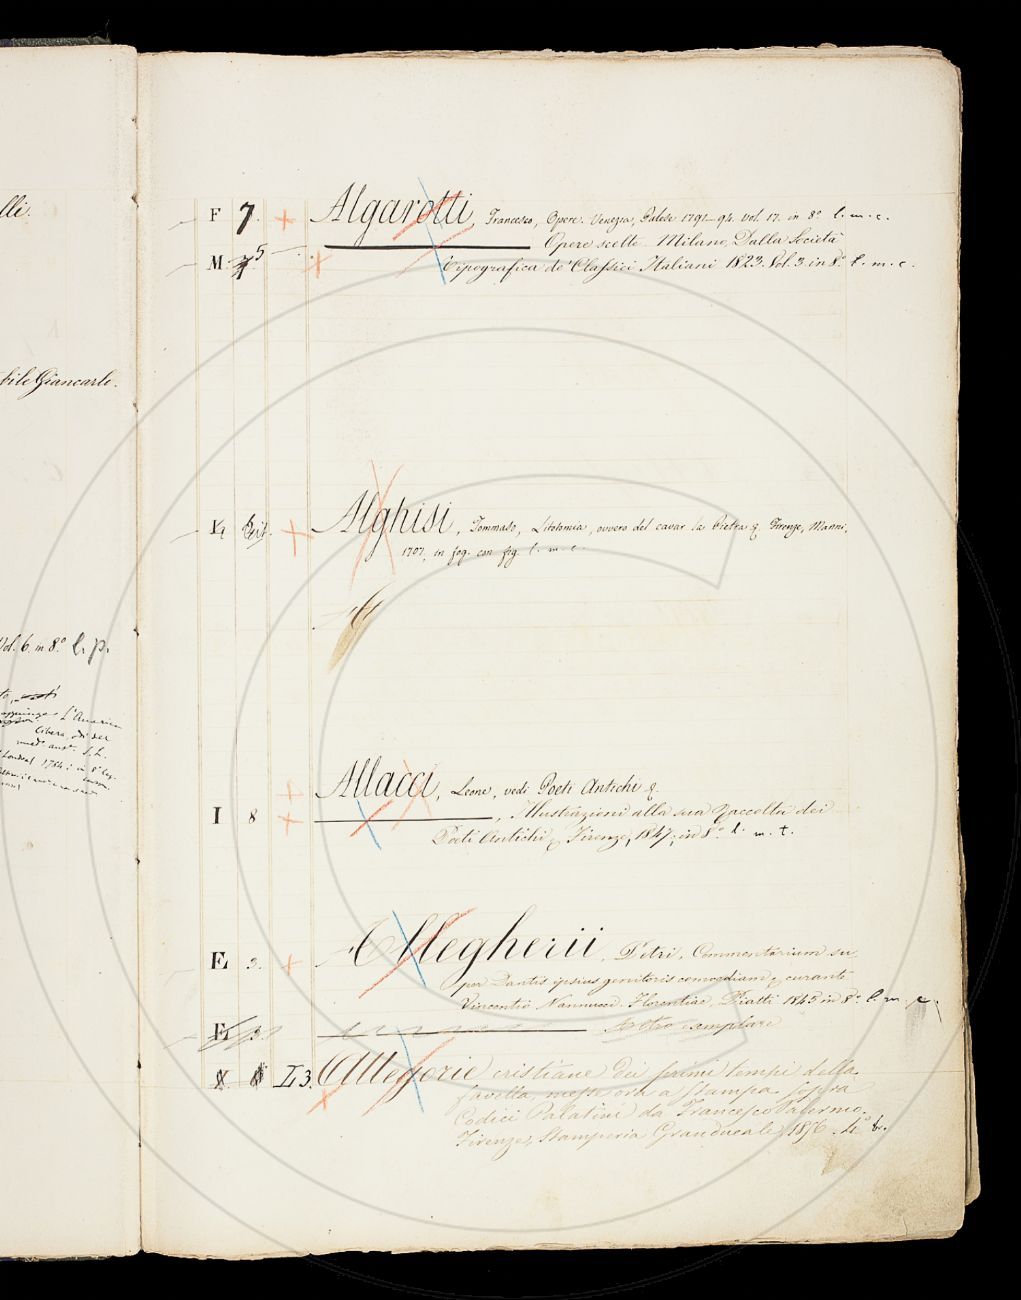 lli.
bile Giancarlo.
Vol. 6. in 8.° l. p.
l'America
libera, odi
Londra 1784
F 7. Algarotti, Francesco, Opere. Venezia, Palese 1791–94. Vol. 17. in 8.° l. m. c.
Opere scelte. Milano, Dalla Società
M. 5 Tipografica de' Classici Italiani 1823. Vol. 3. in 8.° l. m. c.
Alghisi, Tommaso, Litotomia, ovvero del cavar la Pietra &. Firenze, Manni,
1707, in fog. con fig. l. m. c.
Al
Allacci, Leone, vedi Poeti Antichi &.
I 8 , Illustrazioni alla sua Raccolta dei
Poeti Antichi & Firenze, 1847, in 8.° l. m. t.
E 3. Allegherii, Petri, Commentarium su
per Dantis ipsius genitoris comoediam & curante
Vincentio Nannucci. Florentiae, Piatti 1845 in 8.° l. m. c.
E 3. altro esemplare
L 3. Allegorie cristiane dei primi tempi della
favella, messe ora a stampa sopra
Codici Palatini da Francesco Palermo.
Firenze, Stamperia Granducale, 1856. 4.° b.